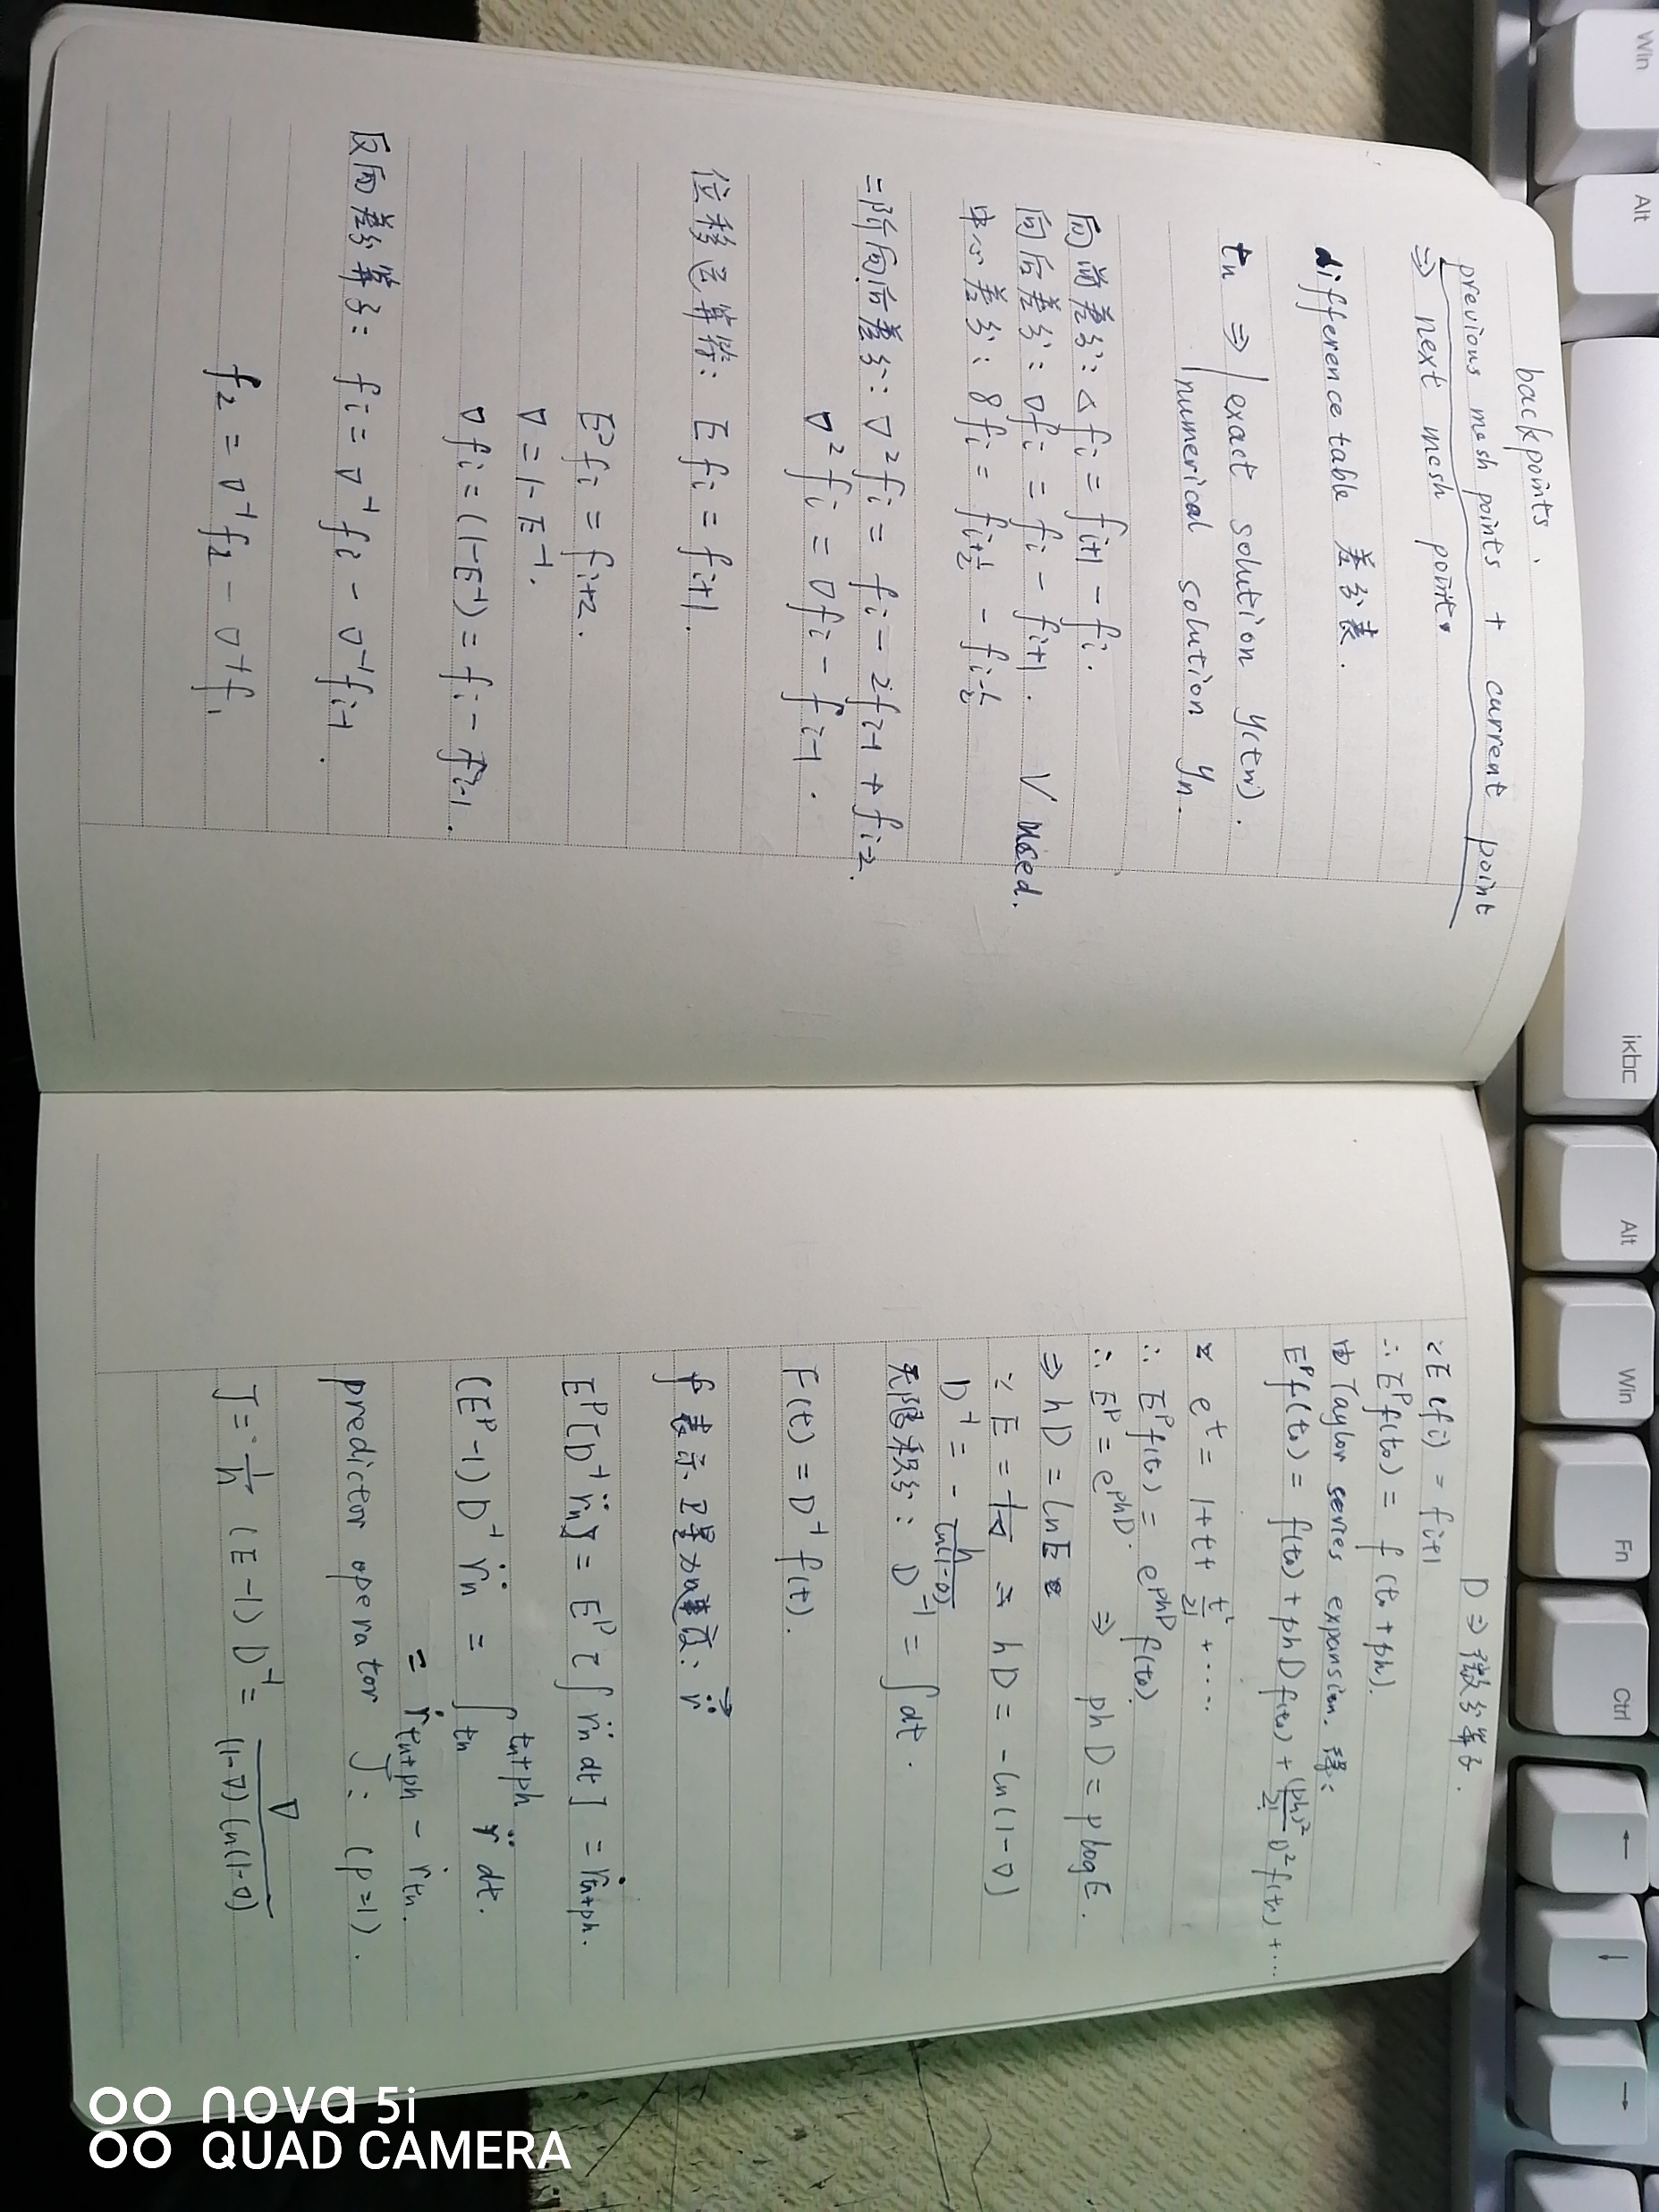 backpoints.
previous mesh points + current point
⇒ next mesh point.
difference table 差分表.
tn ⇒ | exact solution y(tn).
| numerical solution yn.
向前差分: Δfi = fi+1 - fi.
向后差分: ∇fi = fi - fi+1. √ used.
中心差分: δfi = fi+½ - fi-½
二阶向后差分: ∇²fi = fi - 2fi-1 + fi-2.
∇²fi = ∇fi - fi-1.
位移运算符: E fi = fi+1.
E²fi = fi+2.
∇ = 1 - E⁻¹.
∇fi = (1-E⁻¹) = fi - fi-1.
反向差分算子: fi = ∇⁻¹fi - ∇⁻¹fi-1.
f2 = ∇⁻¹f2 - ∇⁻¹f1
D ⇒ 微分算子.
∵ E(fi) = fi+1
∴ E^p f(t0) = f(t0+ph).
由 Taylor series expansion, 得:
E^p f(t0) = f(t0) + phDf(t0) + (ph)²/2! D²f(t0) + ...
e^t = 1+t+ t²/2! + ....
∴ E^p f(t0) = e^phD f(t0).
∴ E^p = e^phD. ⇒ phD = p log E.
⇒ hD = ln E
∵ E = 1/(1-∇) ⇒ hD = -ln(1-∇)
D⁻¹ = - h/ln(1-∇)
无限积分: D⁻¹ = ∫dt.
F(t) = D⁻¹f(t).
f 表示 卫星加速度: r̈
E^p[D⁻¹r̈n] = E^p[∫r̈n dt] = ṙtn+ph.
(E^p-1)D⁻¹r̈n = ∫tn tn+ph r̈ dt.
= ṙtn+ph - ṙtn.
predictor operator J: (p=1).
J = 1/h (E-1)D⁻¹ = ∇/(1-∇)ln(1-∇)
Win
Alt
ikbc
Alt
Win
Fn
Ctrl
←
↓
→
nova 5i
QUAD CAMERA